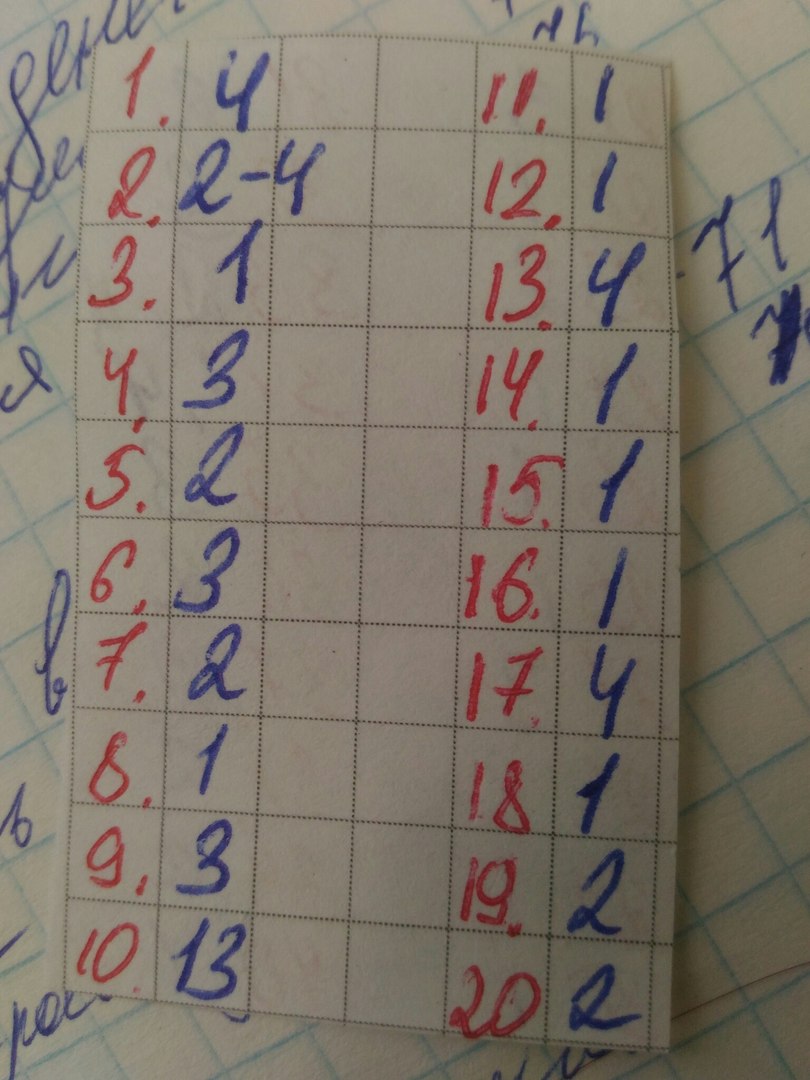 1. 4 11. 1
2. 2-4 12. 1
3. 1 13. 4
4. 3 14. 1
5. 2 15. 1
6. 3 16. 1
7. 2 17. 4
8. 1 18. 1
9. 3 19. 2
10. 13 20. 2
71
я
в